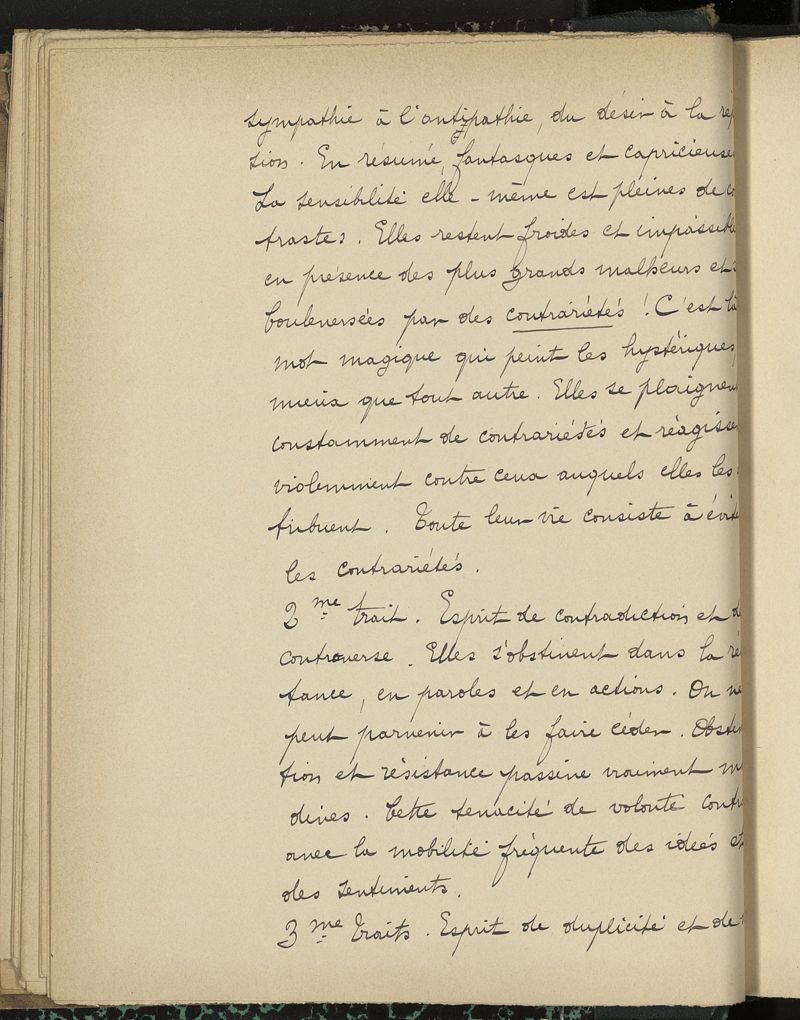 sympathie à l'antipathie, du désir à la rép
sion. En résumé, fantasques et capricieuse
La sensibilité elle-même est pleines de co
trastes. Elles restent froides et impassibl
en présence des plus grands malheurs et
bouleversées par des contrariétés ! C'est là
mot magique qui peint les hystériques
mieux que tout autre. Elles se plaignen
constamment de contrariétés et réagisse
violemment contre ceux auquels elles les
tribuent. Toute leur vie consiste à évit
les contrariétés.
2me trait. Esprit de contradiction et d
controverse. Elles s'obstinent dans la ré
tance, en paroles et en actions. On ne
peut parvenir à les faire céder. Obstin
tion et résistance passive vraiment
dives. Cette tenacité de volonté contr
avec la mobilité fréquente des idées et
des sentiments.
3me traits. Esprit de duplicité et de